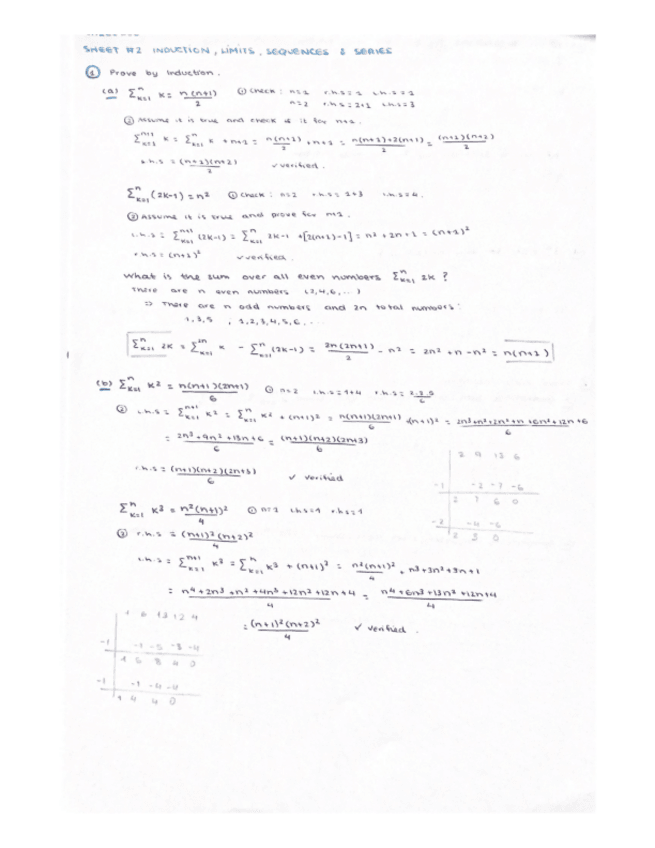 SHEET #2 INDUCTION, LIMITS, SEQUENCES & SERIES
① Prove by induction.
(a) ∑ₖ₌₁ⁿ k = n(n+1)/2 ① check: n=1 r.h.s=1 l.h.s=1
n=2 r.h.s=2+1 l.h.s=3
② Assume it is true and check if it for n+1.
∑ₖ₌₁ⁿ⁺¹ k = ∑ₖ₌₁ⁿ k + n+1 = n(n+1)/2 + n+1 = n(n+1)+2(n+1)/2 = (n+1)(n+2)/2
r.h.s = (n+1)(n+2)/2 ✓ verified.
∑ₖ₌₁ⁿ (2k-1) = n² ① check: n=2 r.h.s=1+3 l.h.s=4.
② Assume it is true and prove for n+1.
l.h.s = ∑ₖ₌₁ⁿ⁺¹ (2k-1) = ∑ₖ₌₁ⁿ 2k-1 +[2(n+1)-1] = n²+2n+1 = (n+1)²
r.h.s = (n+1)² ✓ verified.
What is the sum over all even numbers ∑ₖ₌₁ⁿ 2k ?
There are n even numbers (2,4,6,...)
⇒ There are n odd numbers and 2n total numbers:
1,3,5 , 1,2,3,4,5,6,...
∑ₖ₌₁ⁿ 2k = ∑ₖ₌₁²ⁿ k - ∑ₖ₌₁ⁿ (2k-1) = 2n(2n+1)/2 - n² = 2n²+n-n² = n(n+1)
(b) ∑ₖ₌₁ⁿ k² = n(n+1)(2n+1)/6 ① n=2 l.h.s=1+4 r.h.s=2·3·5/6
② l.h.s = ∑ₖ₌₁ⁿ⁺¹ k² = ∑ₖ₌₁ⁿ k² + (n+1)² = n(n+1)(2n+1)/6 +(n+1)² = 2n³+n²+2n²+n+6n²+12n+6/6
= 2n³+9n²+13n+6/6 = (n+1)(n+2)(2n+3)/6
r.h.s = (n+1)(n+2)(2n+3)/6 ✓ verified
2 9 13 6
-1 -2 -7 -6
2 7 6 0
-2 -4 -6
2 3 0
∑ₖ₌₁ⁿ k³ = n²(n+1)²/4 ① n=1 l.h.s=1 r.h.s=1
② r.h.s = (n+1)²(n+2)²/4
l.h.s = ∑ₖ₌₁ⁿ⁺¹ k³ = ∑ₖ₌₁ⁿ k³ + (n+1)³ = n²(n+1)²/4 + n³+3n²+3n+1
= n⁴+2n³+n²+4n³+12n²+12n+4/4 = n⁴+6n³+13n²+12n+4/4
= (n+1)²(n+2)²/4 ✓ verified.
1 6 13 12 4
-1 -1 -5 -8 -4
1 5 8 4 0
-1 -1 -4 -4
1 4 4 0